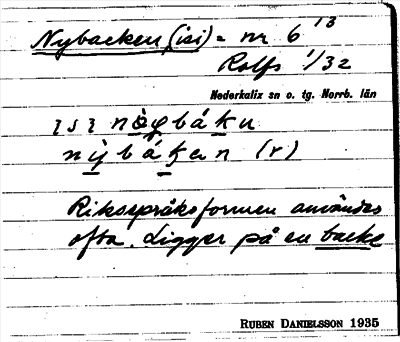 Nybacken (isi) = nr 6 13
Rolfs 1/32
Nederkalix sn o. tg. Norrb. län
ısı nò̱y̱báḵu
nỳ̱báḵan (r)
Riksspråksformen användes
ofta. Ligger på en backe
RUBEN DANIELSSON 1935